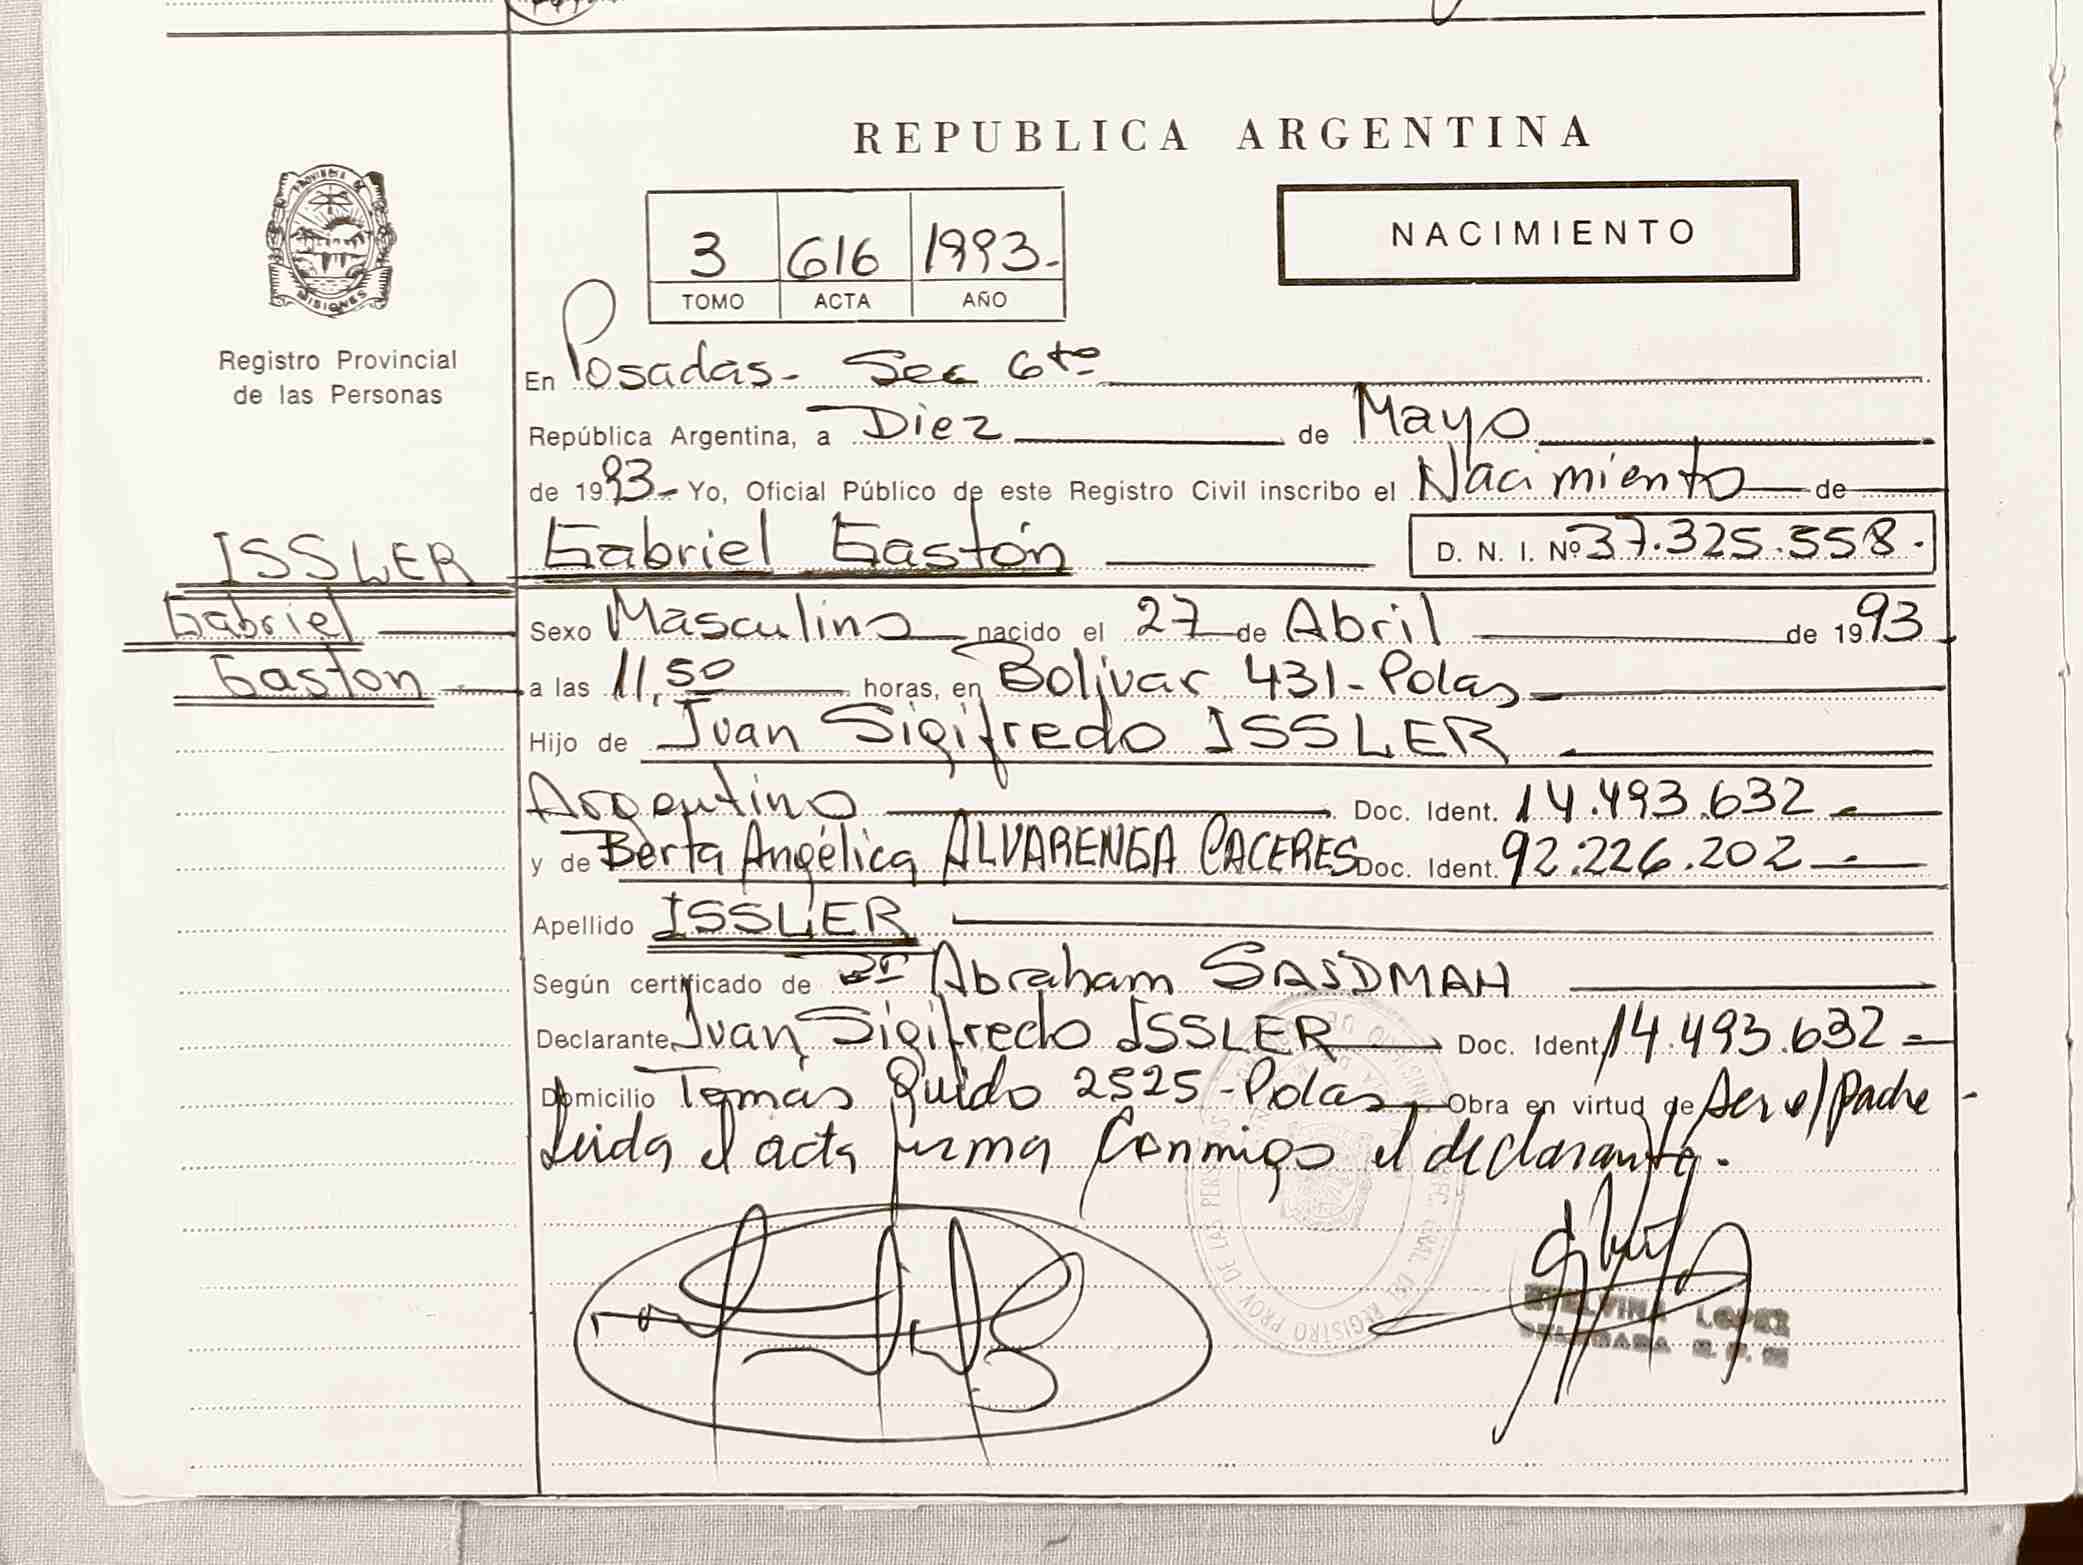 REPUBLICA ARGENTINA
PROVINCIA DE
MISIONES
Registro Provincial
de las Personas
3 616 1993.-
TOMO ACTA AÑO
NACIMIENTO
En Posadas - Sec 6ta
República Argentina, a Diez de Mayo
de 1993.- Yo, Oficial Público de este Registro Civil inscribo el Nacimiento de
ISSLER
Gabriel
Gaston
Gabriel Gastón D. N. I. Nº 37.325.558.
Sexo Masculino nacido el 27 de Abril de 1993
a las 11,50 horas, en Bolivar 431 - Pdas
Hijo de Juan Sigifredo ISSLER
Argentino Doc. Ident. 14.493.632
y de Berta Angélica ALVARENGA CACERES Doc. Ident. 92.226.202
Apellido ISSLER
Según certificado de Dr Abraham
Declarante Juan Sigifredo ISSLER Doc. Ident. 14.493.632
Domicilio Tomás Guido 2525 - Pdas Obra en virtud de ser el padre
Leida el acta firma conmigo el declarante.
LOPEZ